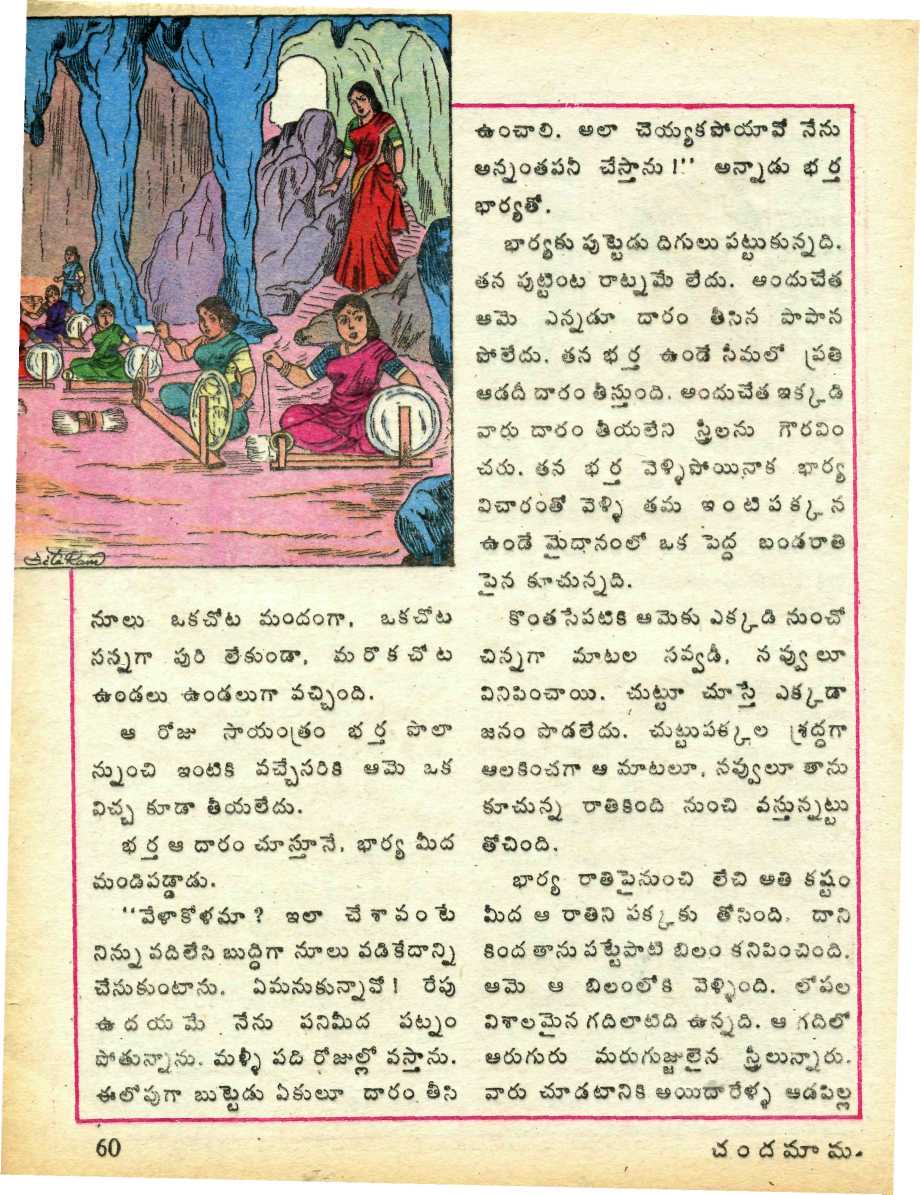 నూలు ఒకచోట మందంగా, ఒకచోట
సన్నగా పురి లేకుండా, మరొకచోట
ఉండలు ఉండలుగా వచ్చింది.
ఆ రోజు సాయంత్రం భర్త పొలా
న్నుంచి ఇంటికి వచ్చేసరికి ఆమె ఒక
విచ్చ కూడా తీయలేదు.
భర్త ఆ దారం చూస్తూనే, భార్య మీద
మండిపడ్డాడు.
"వేళాకోళమా? ఇలా చేశావంటే
నిన్ను వదిలేసి బుద్ధిగా నూలు వడికేదాన్ని
చేసుకుంటాను. ఏమనుకున్నావో! రేపు
ఉదయమే నేను పనిమీద పట్నం
పోతున్నాను. మళ్ళీ పది రోజుల్లో వస్తాను.
ఈలోపుగా బుట్టెడు ఏకులూ దారం తీసి
ఉంచాలి. అలా చెయ్యకపోయావో నేను
అన్నంతపనీ చేస్తాను!" అన్నాడు భర్త
భార్యతో.
భార్యకు పుట్టెడు దిగులు పట్టుకున్నది.
తన పుట్టింట రాట్నమే లేదు. అందుచేత
ఆమె ఎన్నడూ దారం తీసిన పాపాన
పోలేదు. తన భర్త ఉండే సీమలో ప్రతి
ఆడదీ దారం తీస్తుంది. అందుచేత ఇక్కడి
వారు దారం తీయలేని స్త్రీలను గౌరవిం
చరు. తన భర్త వెళ్ళిపోయినాక భార్య
విచారంతో వెళ్ళి తమ ఇంటిపక్కన
ఉండే మైదానంలో ఒక పెద్ద బండరాతి
పైన కూచున్నది.
కొంతసేపటికి ఆమెకు ఎక్కడి నుంచో
చిన్నగా మాటల సవ్వడీ, నవ్వులూ
వినిపించాయి. చుట్టూ చూస్తే ఎక్కడా
జనం పొడలేదు. చుట్టుపక్కల శ్రద్ధగా
ఆలకించగా ఆ మాటలూ, నవ్వులూ తాను
కూచున్న రాతికింది నుంచి వస్తున్నట్టు
తోచింది.
భార్య రాతిపైనుంచి లేచి అతి కష్టం
మీద ఆ రాతిని పక్కకు తోసింది. దాని
కింద తాను పట్టేపాటి బిలం కనిపించింది.
ఆమె ఆ బిలంలోకి వెళ్ళింది. లోపల
విశాలమైన గదిలాటిది ఉన్నది. ఆ గదిలో
ఆరుగురు మరుగుజ్జులైన స్త్రీలున్నారు.
వారు చూడటానికి అయిదారేళ్ళ ఆడపిల్ల
60
చందమామ